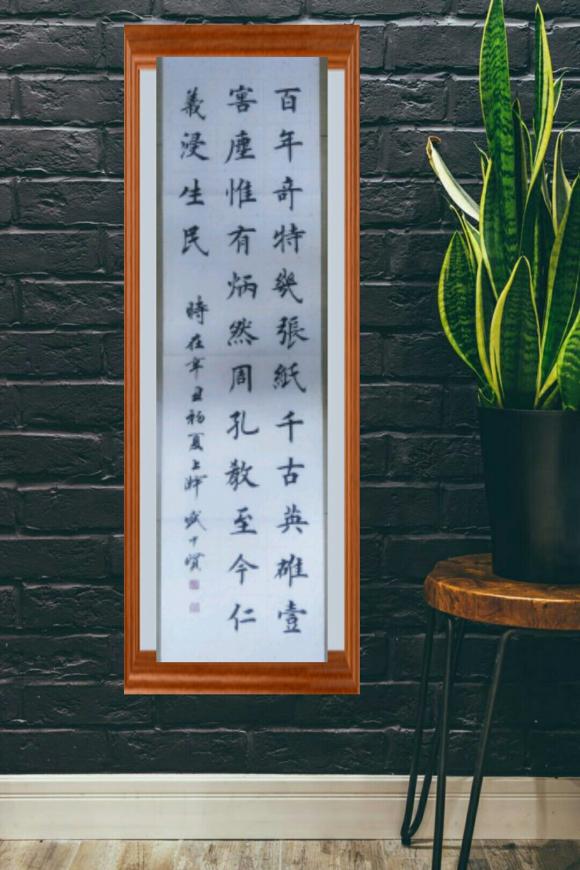 百年奇特幾張紙千古英雄壹
窖塵惟有炳然周孔教至今仁
義浸生民
時在辛丑初夏